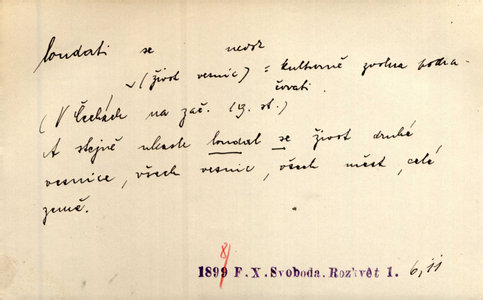 loudati se nedok
(život vesnic) = kulturně zvolna pokra-
čovati.
(V Čechách na zač. 19. st.)
A stejně všude loudal se život druhé
vesnice, všech vesnic, všech měst, celé
země.
1899 8/ F. X. Svoboda. Rozkvět I. 6, 11